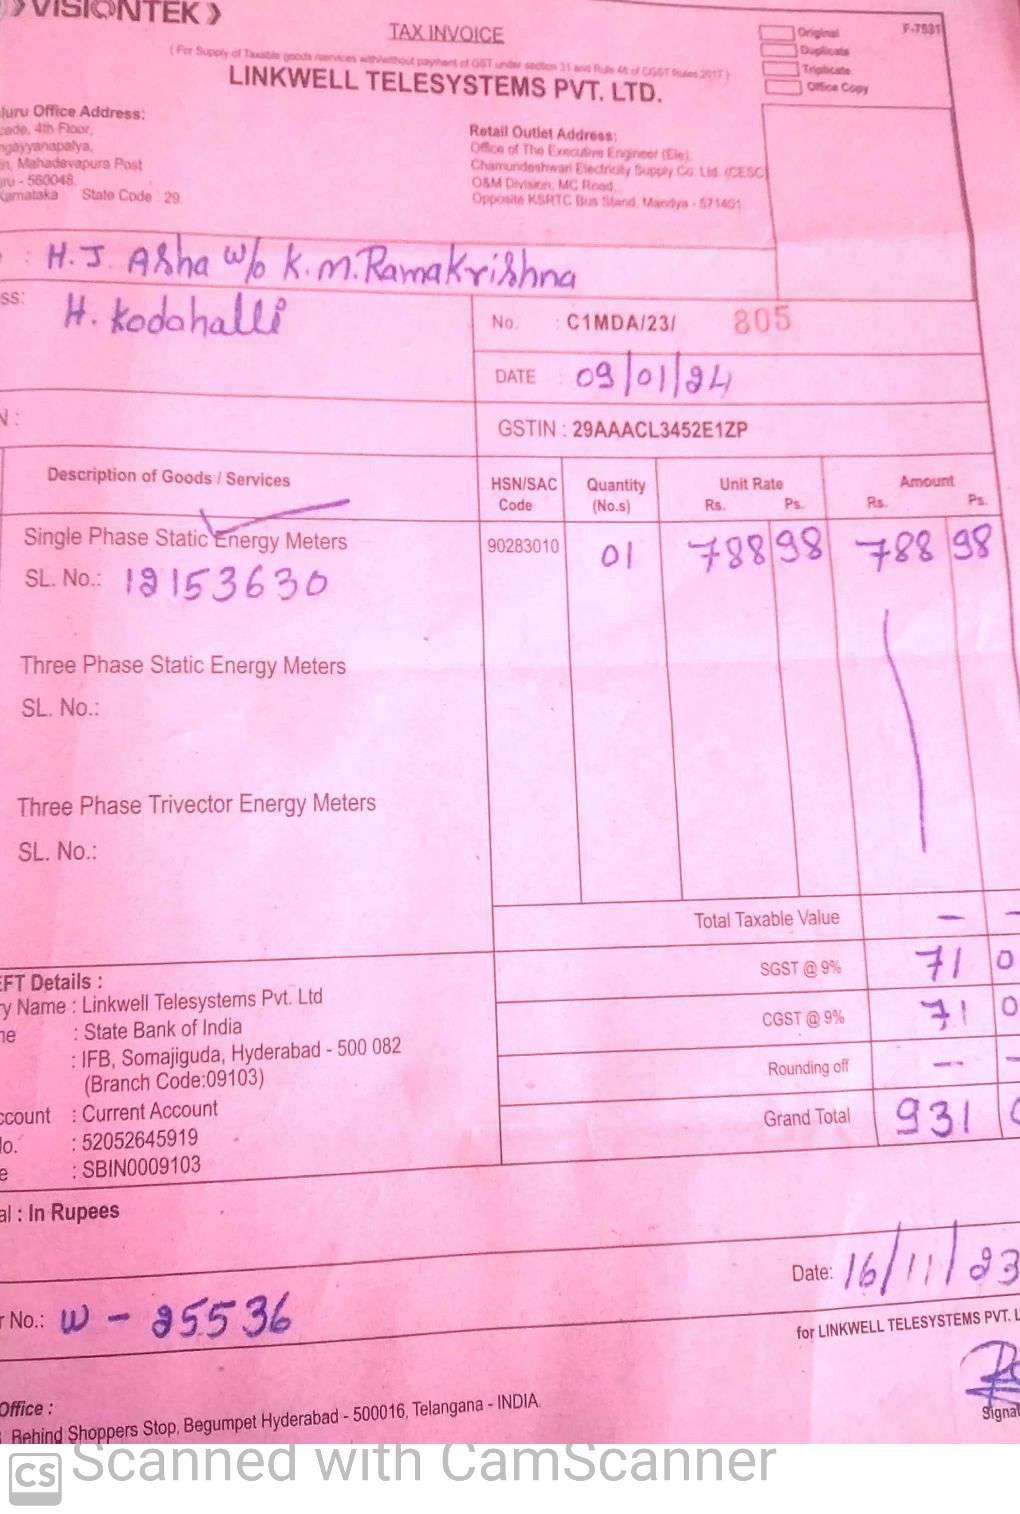 VISIONTEK
TAX INVOICE
Original
F-7531
Duplicate
(For Supply of Taxable goods /services with/without payment of GST under section 31 and Rule 46 of CGST Rules 2017)
Triplicate
LINKWELL TELESYSTEMS PVT. LTD.
Office Copy
luru Office Address:
cade, 4th Floor,
ngayyanapalya,
n, Mahadevapura Post
uru - 560048.
Karnataka State Code : 29.
Retail Outlet Address:
Office of The Executive Engineer (Ele),
Chamundeshwari Electricity Supply Co. Ltd. (CESC)
O&M Division, MC Road,
Opposite KSRTC Bus Stand, Mandya - 571401
: H.J. Asha w/o K.M. Ramakrishna
ss: H. Kodahalli
No. : C1MDA/23/ 805
DATE : 09/01/24
N :
GSTIN : 29AAACL3452E1ZP
Description of Goods / Services
HSN/SAC Code
Quantity (No.s)
Unit Rate Rs. Ps.
Amount Rs. Ps.
Single Phase Static Energy Meters 90283010 01 788 98 788 98
SL. No.: 12153630
Three Phase Static Energy Meters
SL. No.:
Three Phase Trivector Energy Meters
SL. No.:
Total Taxable Value — —
SGST @ 9% 71 0
CGST @ 9% 71 0
Rounding off — —
Grand Total 931 0
EFT Details :
ry Name : Linkwell Telesystems Pvt. Ltd
me : State Bank of India
: IFB, Somajiguda, Hyderabad - 500 082
(Branch Code:09103)
ccount : Current Account
No. : 52052645919
e : SBIN0009103
al : In Rupees
Date: 16/11/23
r No.: W - 25536
for LINKWELL TELESYSTEMS PVT. L
Signat
Office :
Behind Shoppers Stop, Begumpet Hyderabad - 500016, Telangana - INDIA.
CS Scanned with CamScanner